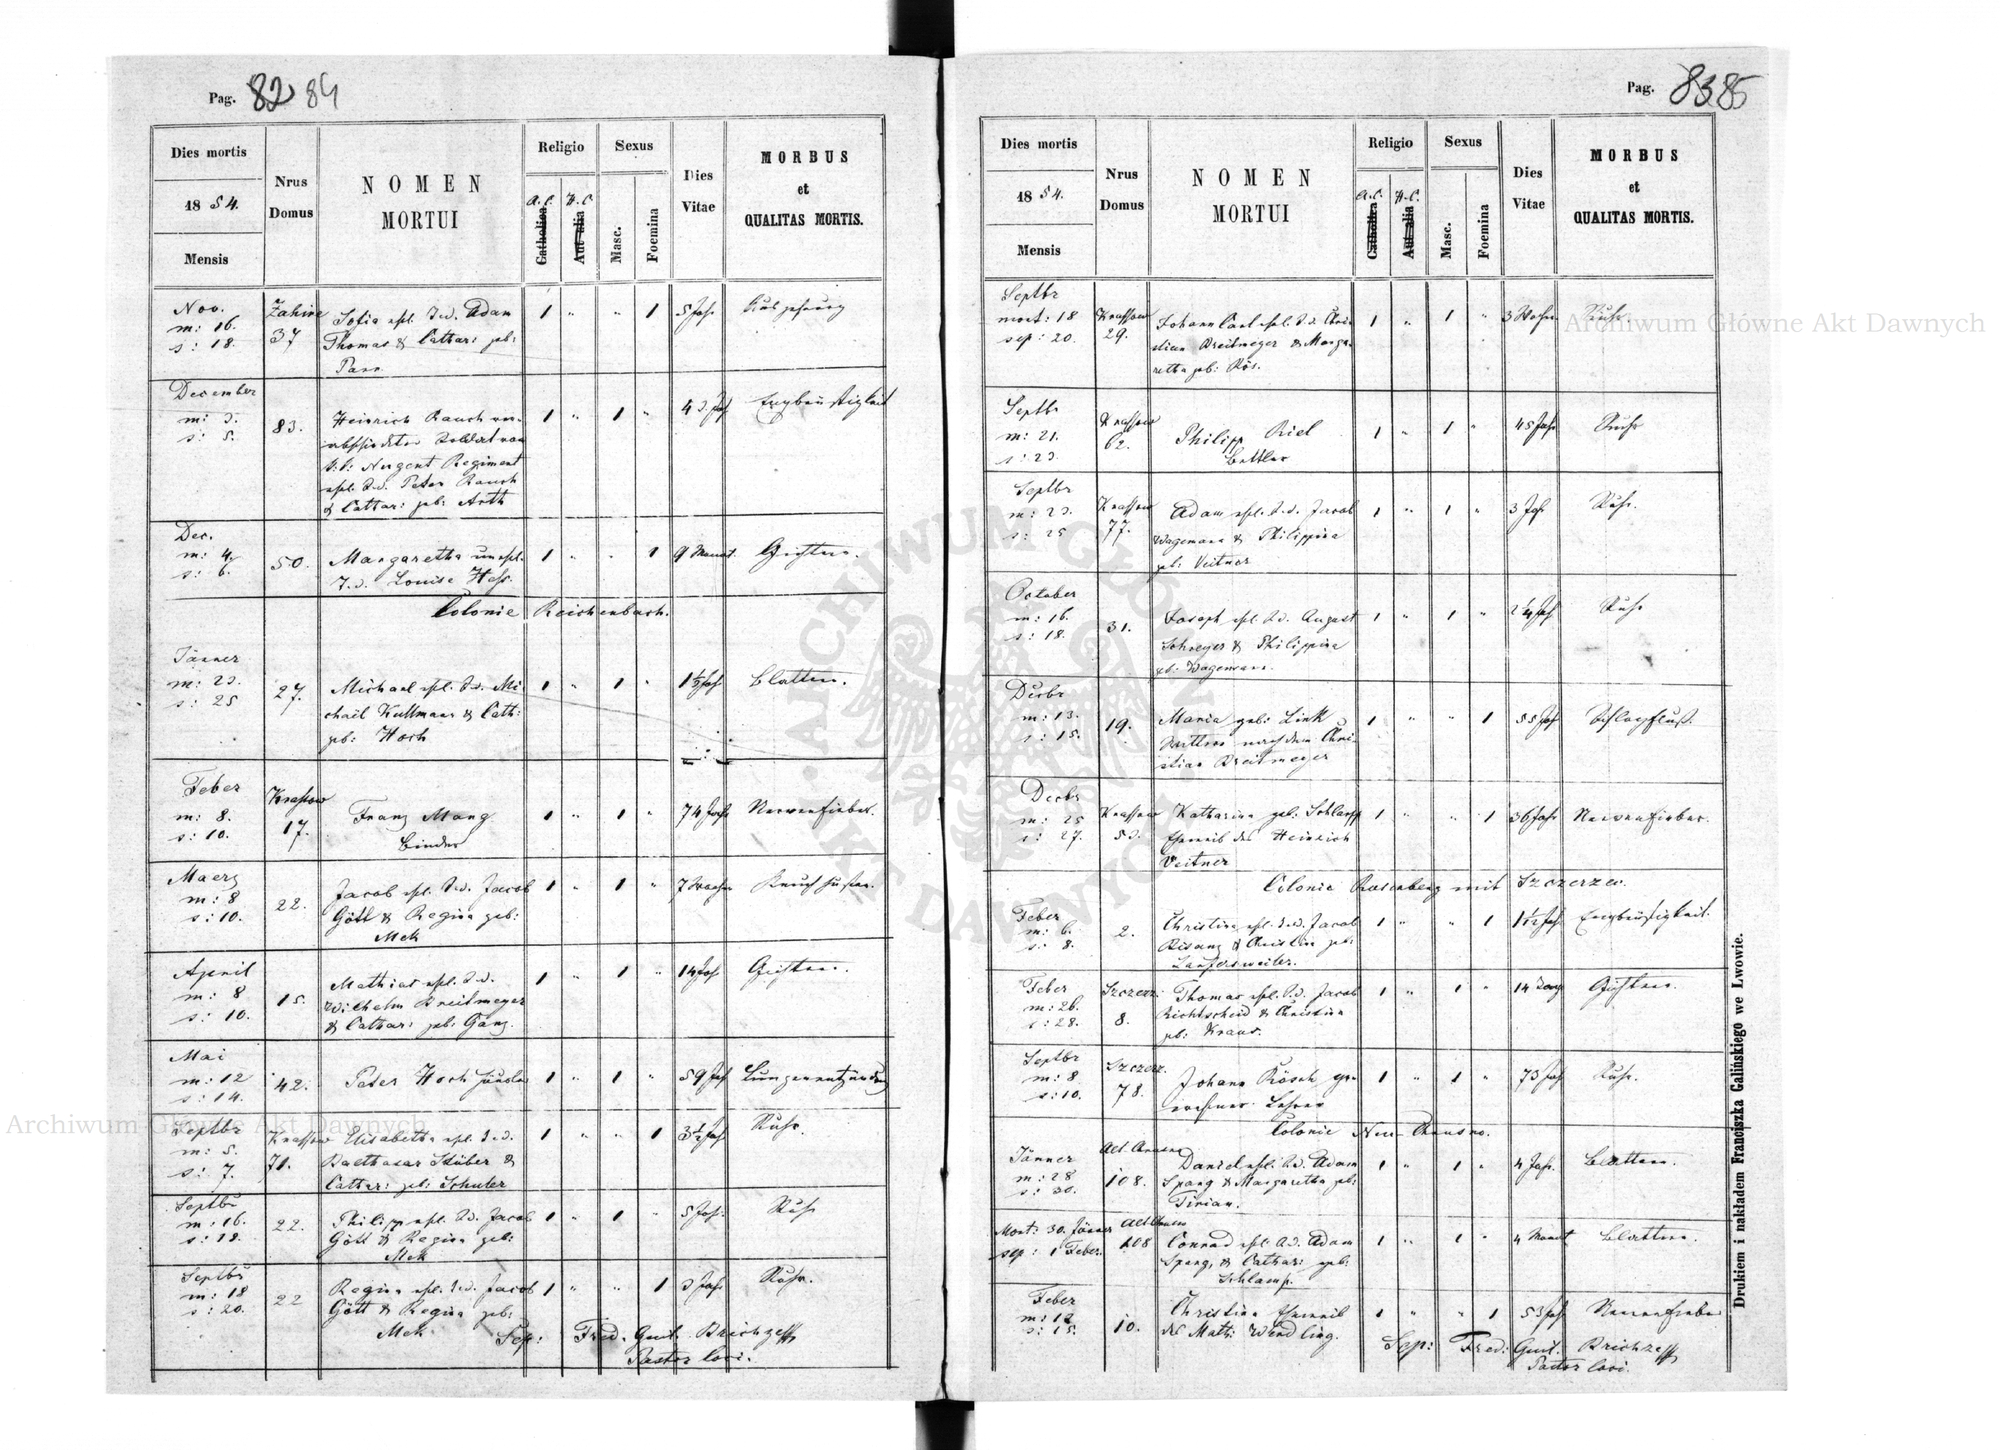 Pag. 82 84
Dies mortis
1854.
Mensis
Nrus
Domus
NOMEN
MORTUI
Religio
A. C.
Catholica
H. C.
Aut alia
Sexus
Masc.
Foemina
Dies
Vitae
MORBUS
et
QUALITAS MORTIS.
Nov.
m: 16.
s: 18.
37
Sofia ehl. T. d. Adam
Thomas & Cathar: geb:
1 " " 1 5 Jahr
December
m: 3.
s: 5.
83.
Heinrich Rauch ver-
abschiedeter Soldat von
Nugent Regiment
ehl. S. d. Peter Rauch
& Cathar: geb: Arth
1 " 1 " 43 Jahr Engbrüstigkeit
Dec.
m: 4.
s: 6.
50.
Margaretha unehl.
T. d. Louise Hass.
1 " " 1 9 Monat
Colonie Reichenbach.
Jänner
m: 23.
s: 25
27.
Michael ehl. S. d. Mi-
chail Kullmann & Cath:
geb: Hoch
1 " 1 " 1½ Jahr Blattern.
Feber
m: 8.
s: 10.
Krassow
17.
Franz Mang
Binder
1 " 1 " 74 Jahr Nervenfieber.
Maerz
m: 8
s: 10.
22.
Jacob ehl. S. d. Jacob
Gött & Regina geb:
Mek
1 " 1 " 7 Wochen Keuchhusten.
April
m: 8
s: 10.
15.
Mathias ehl. S. d.
Wilhelm Breitmeyer
& Cathar: geb: Ganz.
1 " 1 " 14 Jahr
Mai
m: 12
s: 14.
42.
Peter Hoch
1 " 1 " 59 Jahr Lungenentzündung
Septbr
m: 5.
s: 7.
Krassow
71.
Elisabetha ehl. T. d.
Balthasar Stüber &
Cathar: geb: Schuler
1 " " 1 3½ Jahr Ruhr.
Septbr
m: 16.
s: 18.
22.
Philipp ehl. S. d. Jacob
Gött & Regina geb:
Mek
1 " 1 " 5 Jahr. Ruhr
Septbr
m: 18
s: 20.
22
Regina ehl. T. d. Jacob
Gött & Regina geb:
Mek.
1 " " 1 3 Jahr Ruhr.
Sep: Fred. Guil. Brichzeff
Pastor loci.
Pag. 83 85
Dies mortis
1854.
Mensis
Nrus
Domus
NOMEN
MORTUI
Religio
A. C.
Catholica
H. C.
Aut alia
Sexus
Masc.
Foemina
Dies
Vitae
MORBUS
et
QUALITAS MORTIS.
Septbr
mort: 18
sep: 20.
Krassow
29.
Johann Carl ehl. S. d. Chri-
stian Breitmeyer & Marga-
retha geb: Rös.
1 " 1 " 3 Wochen Ruhr.
Septbr
m: 21.
s: 23.
Krassow
62.
Philipp Riel
Bettler
1 " 1 " 45 Jahr Ruhr
Septbr
m: 23.
s: 25
Krassow
77.
Adam ehl. S. d. Jacob
Wagemann & Philippina
geb: Veitner
1 " 1 " 3 Jahr Ruhr.
October
m: 16.
s: 18.
31.
Joseph ehl. S. d. August
Schreyer & Philippina
geb: Wagemann.
1 " 1 " 2¼ Jahr Ruhr
Decbr
m: 13.
s: 15.
19.
Maria geb: Link
Wittwe nach dem Chri-
stian Breitmeyer
1 " " 1 55 Jahr Schlagfluß.
Decbr
m: 25
s: 27.
Krassow
53.
Katharina geb. Schlarpp
Eheweib des Heinrich
Veitner
1 " " 1 36 Jahr Nervenfieber.
Colonie Rosenberg mit Szczerzec.
Feber
m: 6.
s: 8.
2.
Christina ehl. T. d. Jacob
Bisanz & Christin geb:
Laufersweiler.
1 " " 1 1½ Jahr Engbrüstigkeit.
Feber
m: 26.
s: 28.
Szczerz.
8.
Thomas ehl. S. d. Jacob
Richtscheid & Christina
geb: Kraus.
1 " 1 " 14 Tag
Septbr
m: 8
s: 10.
Szczerz.
78.
Johann Kösch ge-
wesener Lehrer
1 " 1 " 73 Jahr Ruhr.
Colonie Neu-Chrusno.
Jänner
m: 28
s: 30.
Alt Chrusno
108.
Daniel ehl. S. d. Adam
Spang & Margaretha geb:
Tirian.
1 " 1 " 4 Jahr. Blattern.
Mort: 30. Jänner
sep: 1 Feber.
Alt Chrusno
108
Conrad ehl. S. d. Adam
Spang, & Cathar: geb:
Schlamp.
1 " 1 " 4 Monat Blattern.
Feber
m: 12
s: 15.
10.
Christina Eheweib
des Math: Wendling.
1 " " 1 53 Jahr Nervenfieber
Sep: Fred: Guil. Brichzeff
Pastor loci.
Drukiem i nakładem Franciszka Galińskiego we Lwowie.
Archiwum Główne Akt Dawnych
Archiwum Główne Akt Dawnych
ARCHIWUM GŁÓWNE AKT DAWNYCH